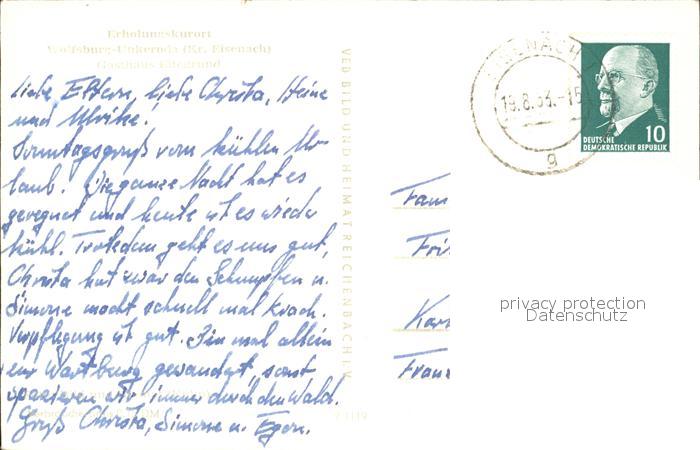 Erholungskurort
Wolfsburg-Unkeroda (Kr. Eisenach)
Gasthaus Eltegrund
Liebe Eltern, liebe Christa, Heine
und Ulrike!
Sonntagsgruß vom kühlen Ur-
laub. Die ganze Nacht hat es
geregnet und heute ist es wieder
kühl. Trotzdem geht es uns gut,
Christa hat zwar den Schnupfen u.
Simone macht schnell mal Krach.
Verpflegung ist gut. Bin mal allein
zur Wartburg gewandert, sonst
spazieren wir immer durch den Wald.
Gruß Christa, Simone u. Egon.
VEB BILD UND HEIMAT REICHENBACH I. V.
EISENACH
19.8.63.-15
g
10
DEUTSCHE
DEMOKRATISCHE REPUBLIK
Fam
Fri
Kar
Fran
privacy protection
Datenschutz